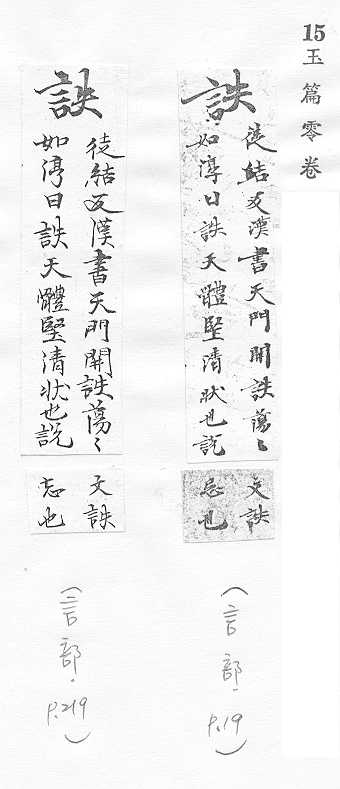 15
玉篇零卷
詄
徒結反漢書天門開詄蕩〻
如淳曰詄天體堅清狀也説
文詄
忘也
(言部. P.19)
詄
徒結反漢書天門開詄蕩〻
如淳曰詄天體堅清狀也説
文詄
忘也
(言部. P.219)